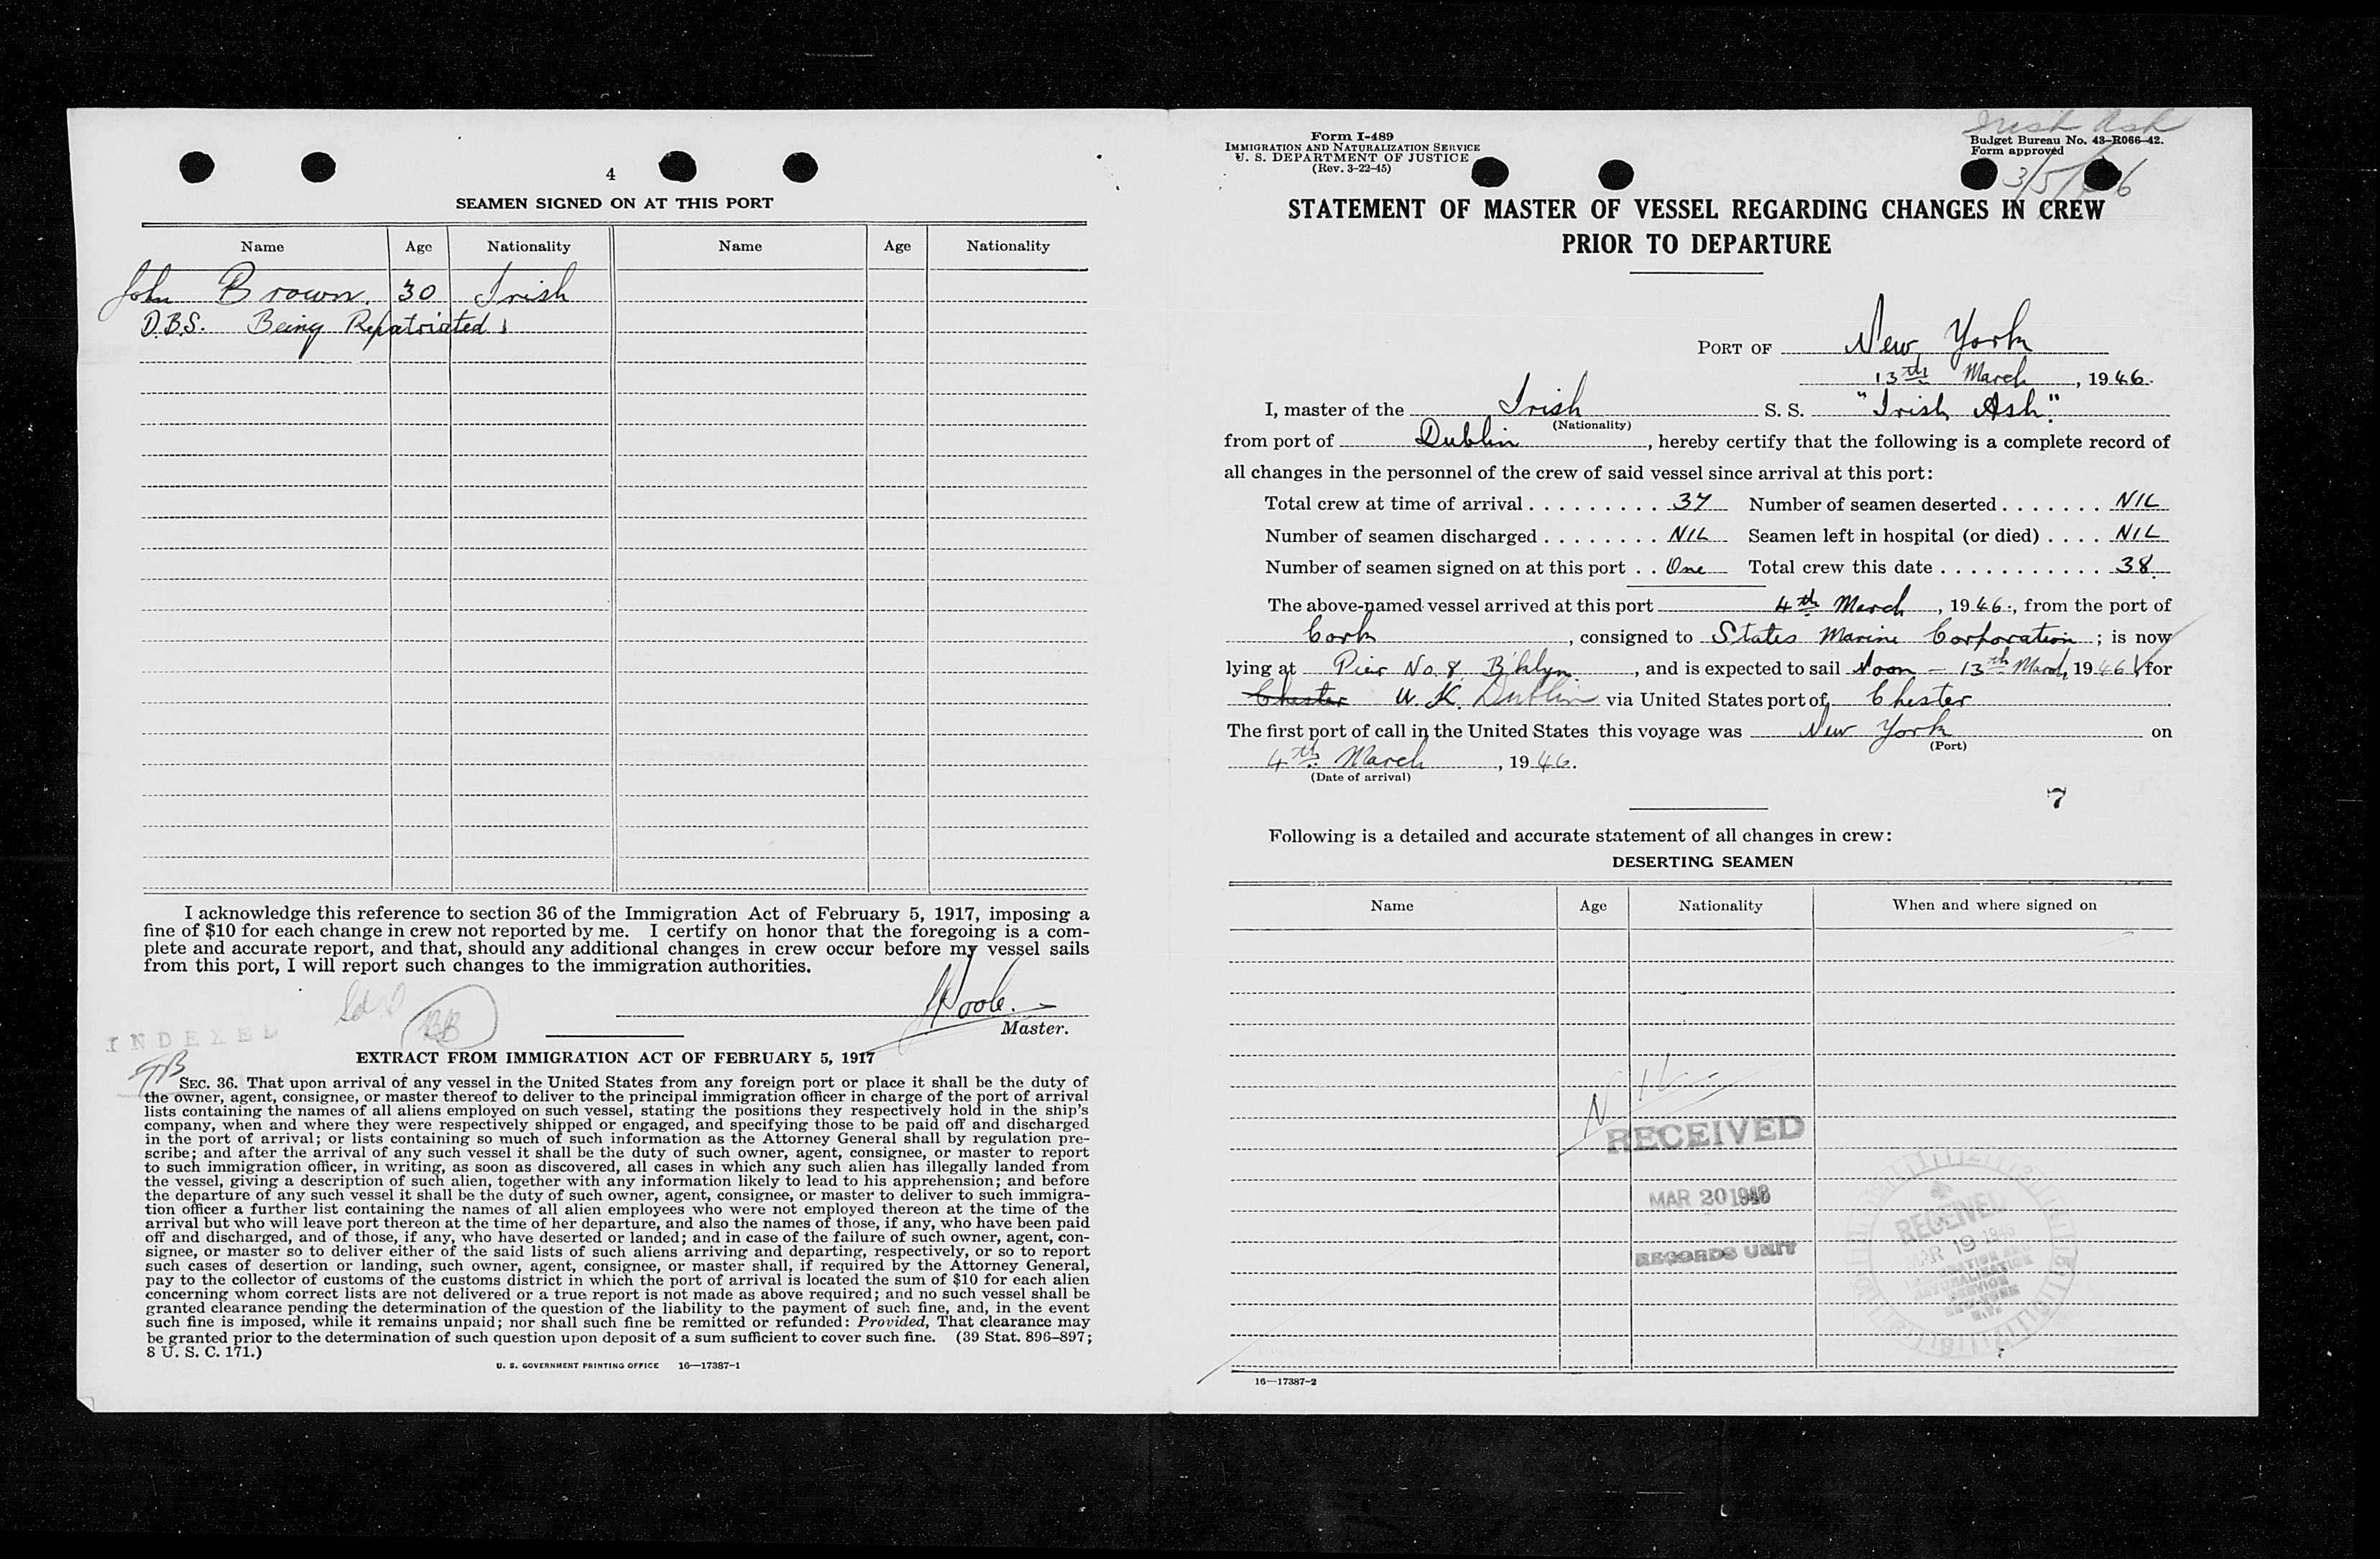 4
SEAMEN SIGNED ON AT THIS PORT
Name Age Nationality Name Age Nationality
John Brown. 30 Irish
D.B.S. Being Repatriated
I acknowledge this reference to section 36 of the Immigration Act of February 5, 1917, imposing a
fine of $10 for each change in crew not reported by me. I certify on honor that the foregoing is a com-
plete and accurate report, and that, should any additional changes in crew occur before my vessel sails
from this port, I will report such changes to the immigration authorities.
Master.
INDEXED
EXTRACT FROM IMMIGRATION ACT OF FEBRUARY 5, 1917
SEC. 36. That upon arrival of any vessel in the United States from any foreign port or place it shall be the duty of
the owner, agent, consignee, or master thereof to deliver to the principal immigration officer in charge of the port of arrival
lists containing the names of all aliens employed on such vessel, stating the positions they respectively hold in the ship's
company, when and where they were respectively shipped or engaged, and specifying those to be paid off and discharged
in the port of arrival; or lists containing so much of such information as the Attorney General shall by regulation pre-
scribe; and after the arrival of any such vessel it shall be the duty of such owner, agent, consignee, or master to report
to such immigration officer, in writing, as soon as discovered, all cases in which any such alien has illegally landed from
the vessel, giving a description of such alien, together with any information likely to lead to his apprehension; and before
the departure of any such vessel it shall be the duty of such owner, agent, consignee, or master to deliver to such immigra-
tion officer a further list containing the names of all alien employees who were not employed thereon at the time of the
arrival but who will leave port thereon at the time of her departure, and also the names of those, if any, who have been paid
off and discharged, and of those, if any, who have deserted or landed; and in case of the failure of such owner, agent, con-
signee, or master so to deliver either of the said lists of such aliens arriving and departing, respectively, or so to report
such cases of desertion or landing, such owner, agent, consignee, or master shall, if required by the Attorney General,
pay to the collector of customs of the customs district in which the port of arrival is located the sum of $10 for each alien
concerning whom correct lists are not delivered or a true report is not made as above required; and no such vessel shall be
granted clearance pending the determination of the question of the liability to the payment of such fine, and, in the event
such fine is imposed, while it remains unpaid; nor shall such fine be remitted or refunded: Provided, That clearance may
be granted prior to the determination of such question upon deposit of a sum sufficient to cover such fine. (39 Stat. 896–897;
8 U. S. C. 171.)
U. S. GOVERNMENT PRINTING OFFICE 16—17387-1
Form I-489
IMMIGRATION AND NATURALIZATION SERVICE
U. S. DEPARTMENT OF JUSTICE
(Rev. 3-22-45)
Irish Ash
Budget Bureau No. 43-R066-42.
Form approved
STATEMENT OF MASTER OF VESSEL REGARDING CHANGES IN CREW
PRIOR TO DEPARTURE
PORT OF New York
13th March, 1946.
I, master of the Irish S. S. "Irish Ash".
(Nationality)
from port of Dublin, hereby certify that the following is a complete record of
all changes in the personnel of the crew of said vessel since arrival at this port:
Total crew at time of arrival 37 Number of seamen deserted NIL
Number of seamen discharged NIL Seamen left in hospital (or died) NIL
Number of seamen signed on at this port One Total crew this date 38.
The above-named vessel arrived at this port 4th March, 1946., from the port of
Cork, consigned to States Marine Corporation; is now
lying at Pier No. 8. B'klyn., and is expected to sail Noon – 13th March, 1946, for
Chester U.K. Dublin via United States port of Chester
The first port of call in the United States this voyage was New York on
(Port)
4th March, 1946.
(Date of arrival)
7
Following is a detailed and accurate statement of all changes in crew:
DESERTING SEAMEN
Name Age Nationality When and where signed on
NIL
RECEIVED
MAR 20 1946
RECORDS UNIT
RECEIVED
MAR 19 1946
IMMIGRATION AND
NATURALIZATION
SERVICE
NEW YORK
N.Y.
16—17387-2